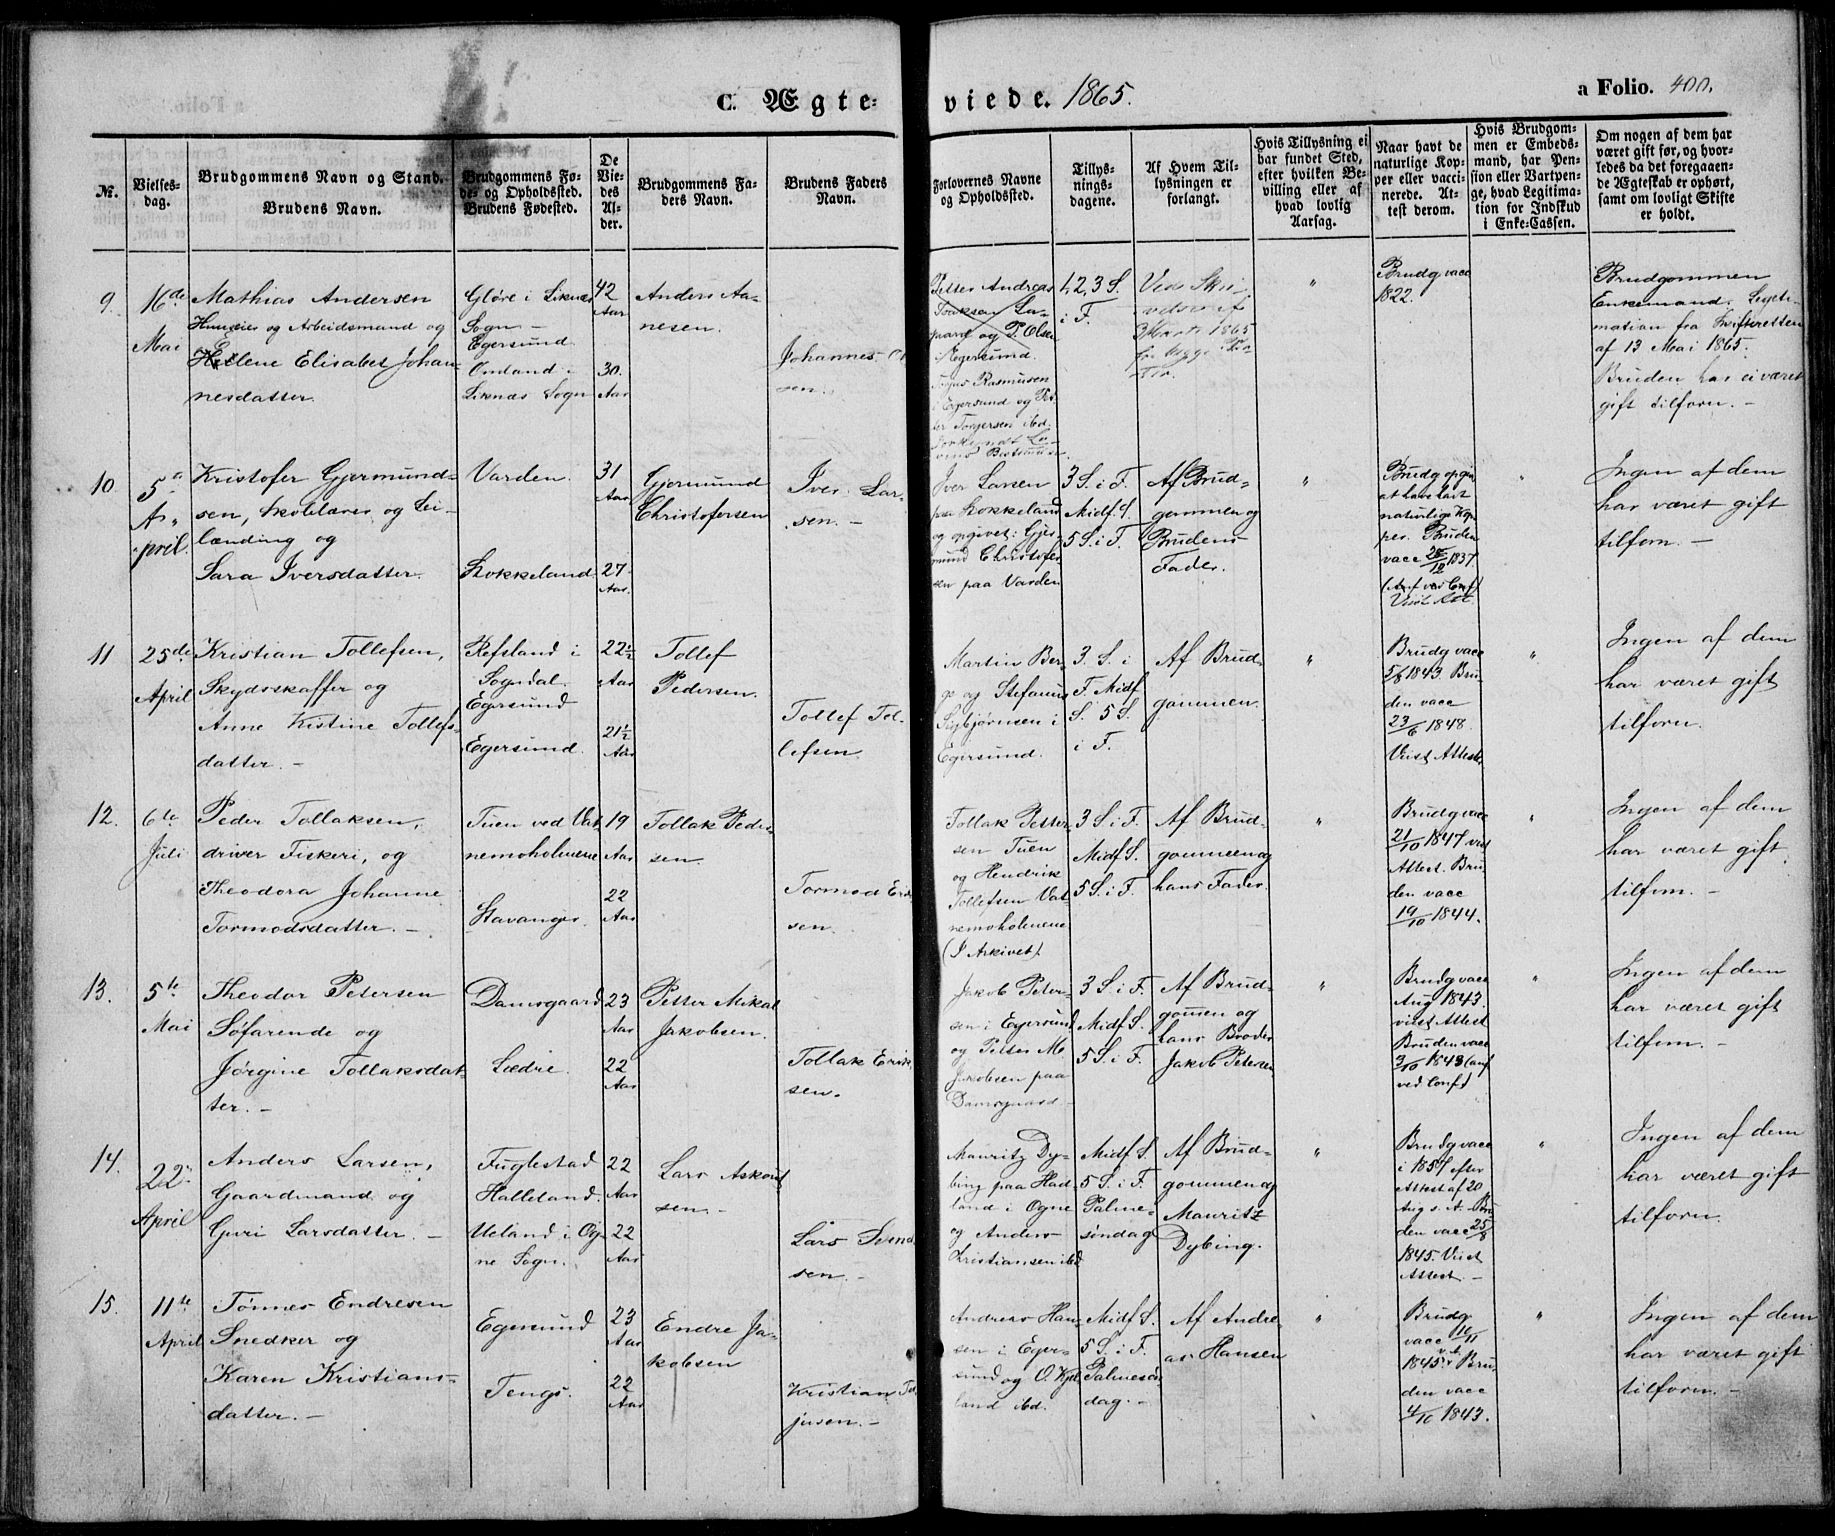 C. Ægte-
viede. 1865.
a Folio. 400.
No.
Vielses-
dag.
Brudgommens Navn og Stand.
Brudens Navn.
Brudgommens Fø-
de- og Opholdssted.
Brudens Fødested.
De
Vie-
des
Al-
der.
Brudgommens Fa-
ders Navn.
Brudens Faders
Navn.
Forlovernes Navne
og Opholdssted.
Tillys-
nings-
dagene.
Af Hvem Til-
lysningen er
forlangt.
Hvis Tillysning ei
har fundet Sted,
efter hvilken Be-
villing eller af
hvad lovlig
Aarsag.
Naar havt de
naturlige Kop-
per eller vacci-
nerede. At-
test derom.
Hvis Brudgom-
men er Embeds-
mand, har Pen-
sion eller Vartpen-
ge, hvad Legitima-
tion for Indskud
i Enke-Cassen.
Om nogen af dem har
været gift før, og hvor-
ledes da det foregaaen-
de Ægteskab er ophørt,
samt om lovligt Skifte
er holdt.
9.
16de
Mai
Mathias Andersen
Huuseier og Arbeidsmand og
Hellene Elisabet Johan-
nesdatter.
Gløre i Liknæs
Sogn -
Egersund
Omland i
Liknæs Sogn
42
Aar
30.
Aar
Anders Aa-
nesen.
Johannes
sen.
Petter Andreas
og P. Olsen
i Egersund.
Rasmusen
i Egersund og Pet-
ter Torgersen ibd.
1, 2, 3 S.
i F.
Ved Skri-
velse af
3 Marts 1865
"
Brudg. vacc
1822.
Brudgommen
Enkemand. Legiti-
mation fra Skifteretten
af 13 Mai 1865.
Bruden har ei været
gift tilforn. -
10
5te
A-
pril.
Kristofer Gjermund-
sen, Skolelærer og Lei-
lænding og
Sara Iversdatter.
Varden.
Lokkeland.
31
Aar
27
Aar.
Gjermund
Christofersen
Iver Lar-
sen. -
Iver Larsen
paa Lokkeland
og opgivet: Gjer-
mund Christofer-
sen paa Varden
3 S. i F.
Midf. S.
5 S. i F.
Af Brud-
gommen og
Brudens
Fader.
"
Brudg. opgiv.
at have havt
naturlige Kop-
per. Bruden
vacc 28/12 1837
(Anf ved Conf)
Viist Att.
"
Ingen af dem
har været gift
tilforn. -
11
25de
April
Kristian Tollefsen,
Skydsskaffer og
Anne Kistine Tollefs-
datter. -
Refsland i
Sogndal.
Egersund
Egersund.
22½
Aar
21½
Aar
Tollef
Pedersen.
Tollef Tol-
lefsen
Martin Ber-
ge og Stefanus
Sigbjørnsen i
Egersund.
3. S. i
F. Midf
S. 5 S.
i F.
Af Brud-
gommen.
"
Brudg vacc
5/6 1843. Bru-
den vacc
23/6 1848.
Viist Attester
"
Ingen af dem
har været gift
tilforn.
12.
6te
Juli
Peder Tollaksen,
driver Fiskeri, og
Theodora Johanne
Tormodsdatter. -
Tuen ved Vat-
nemoholmene
Stavanger.
19
Aar
22
Aar
Tollak Peder-
sen.
Tormod Erik-
sen.
Tollak Petter-
sen Tuen
og Hendrik
Tollefsen Vat-
nemoholmene
(I Arkivet).
3 S. i F.
Midf S.
5 S. i F.
Af Brud-
gommen og
hans Fader.
"
Brudg vacc
21/10 1847 viist
Attest. Bru-
den vacc
19/10 1844.
"
Ingen af dem
har været gift
tilforn. -
13.
5te
Mai
Theodor Petersen
Søfarende og
Jørgine Tollaksdat-
ter. -
Damsgaard
Sædre.
23
Aar
22
Aar
Petter Mikal
Jakobsen.
Tollak Erik-
sen.
Jakob Peter-
sen i Egersund
og Petter M.
Jakobsen paa
Damsgaard. -
3 S. i F.
Midf S.
5 S. i F.
Af Brud-
gommen og
hans Broder
Jakob Petersen
"
Brudg vacc
Aug 1843.
viist Attest
Bruden vacc
3/10 1843 (anf
ved Conf)
"
Ingen af dem
har været gift
tilforn. -
14.
22de
April
Anders Larsen,
Gaardmand og
Guri Larsdatter. -
Fuglestad
Halleland.
Ueland i Og-
ne Sogn.
22
Aar
22
Aar
Lars Askout
sen. -
Lars Svend
sen. -
Mauritz Dy-
bing paa Had-
land i Ogne
og Anders
Kristiansen ibd
Midf S.
5 S. i F.
Palme-
søndag
Af Brud-
gommen og
Mauritz
Dybing.
"
Brudg vacc
i 1857 efter
Attest af 20
Aug s. A. Bru-
den vacc 25/8
1845. Viist
Attest. -
"
Ingen af dem
har været gift
tilforn.
15.
11te
April
Tønnes Endresen
Snedker og
Karen Kristians-
datter. -
Egersund
Tengs.
23
Aar
22
Aar
Endre Ja-
kobsen
Kristian
jusen. -
Andreas Han-
sen i Eger-
sund og O. Kjel-
land ibd.
Midf S.
5 S. i F.
Palmesøn-
dag. -
Af Andre-
as Hansen
"
Brudg
vacc 10/11
1845. Bru-
den vacc
4/10 1843.
"
Ingen af dem
har været gift
tilforn. -